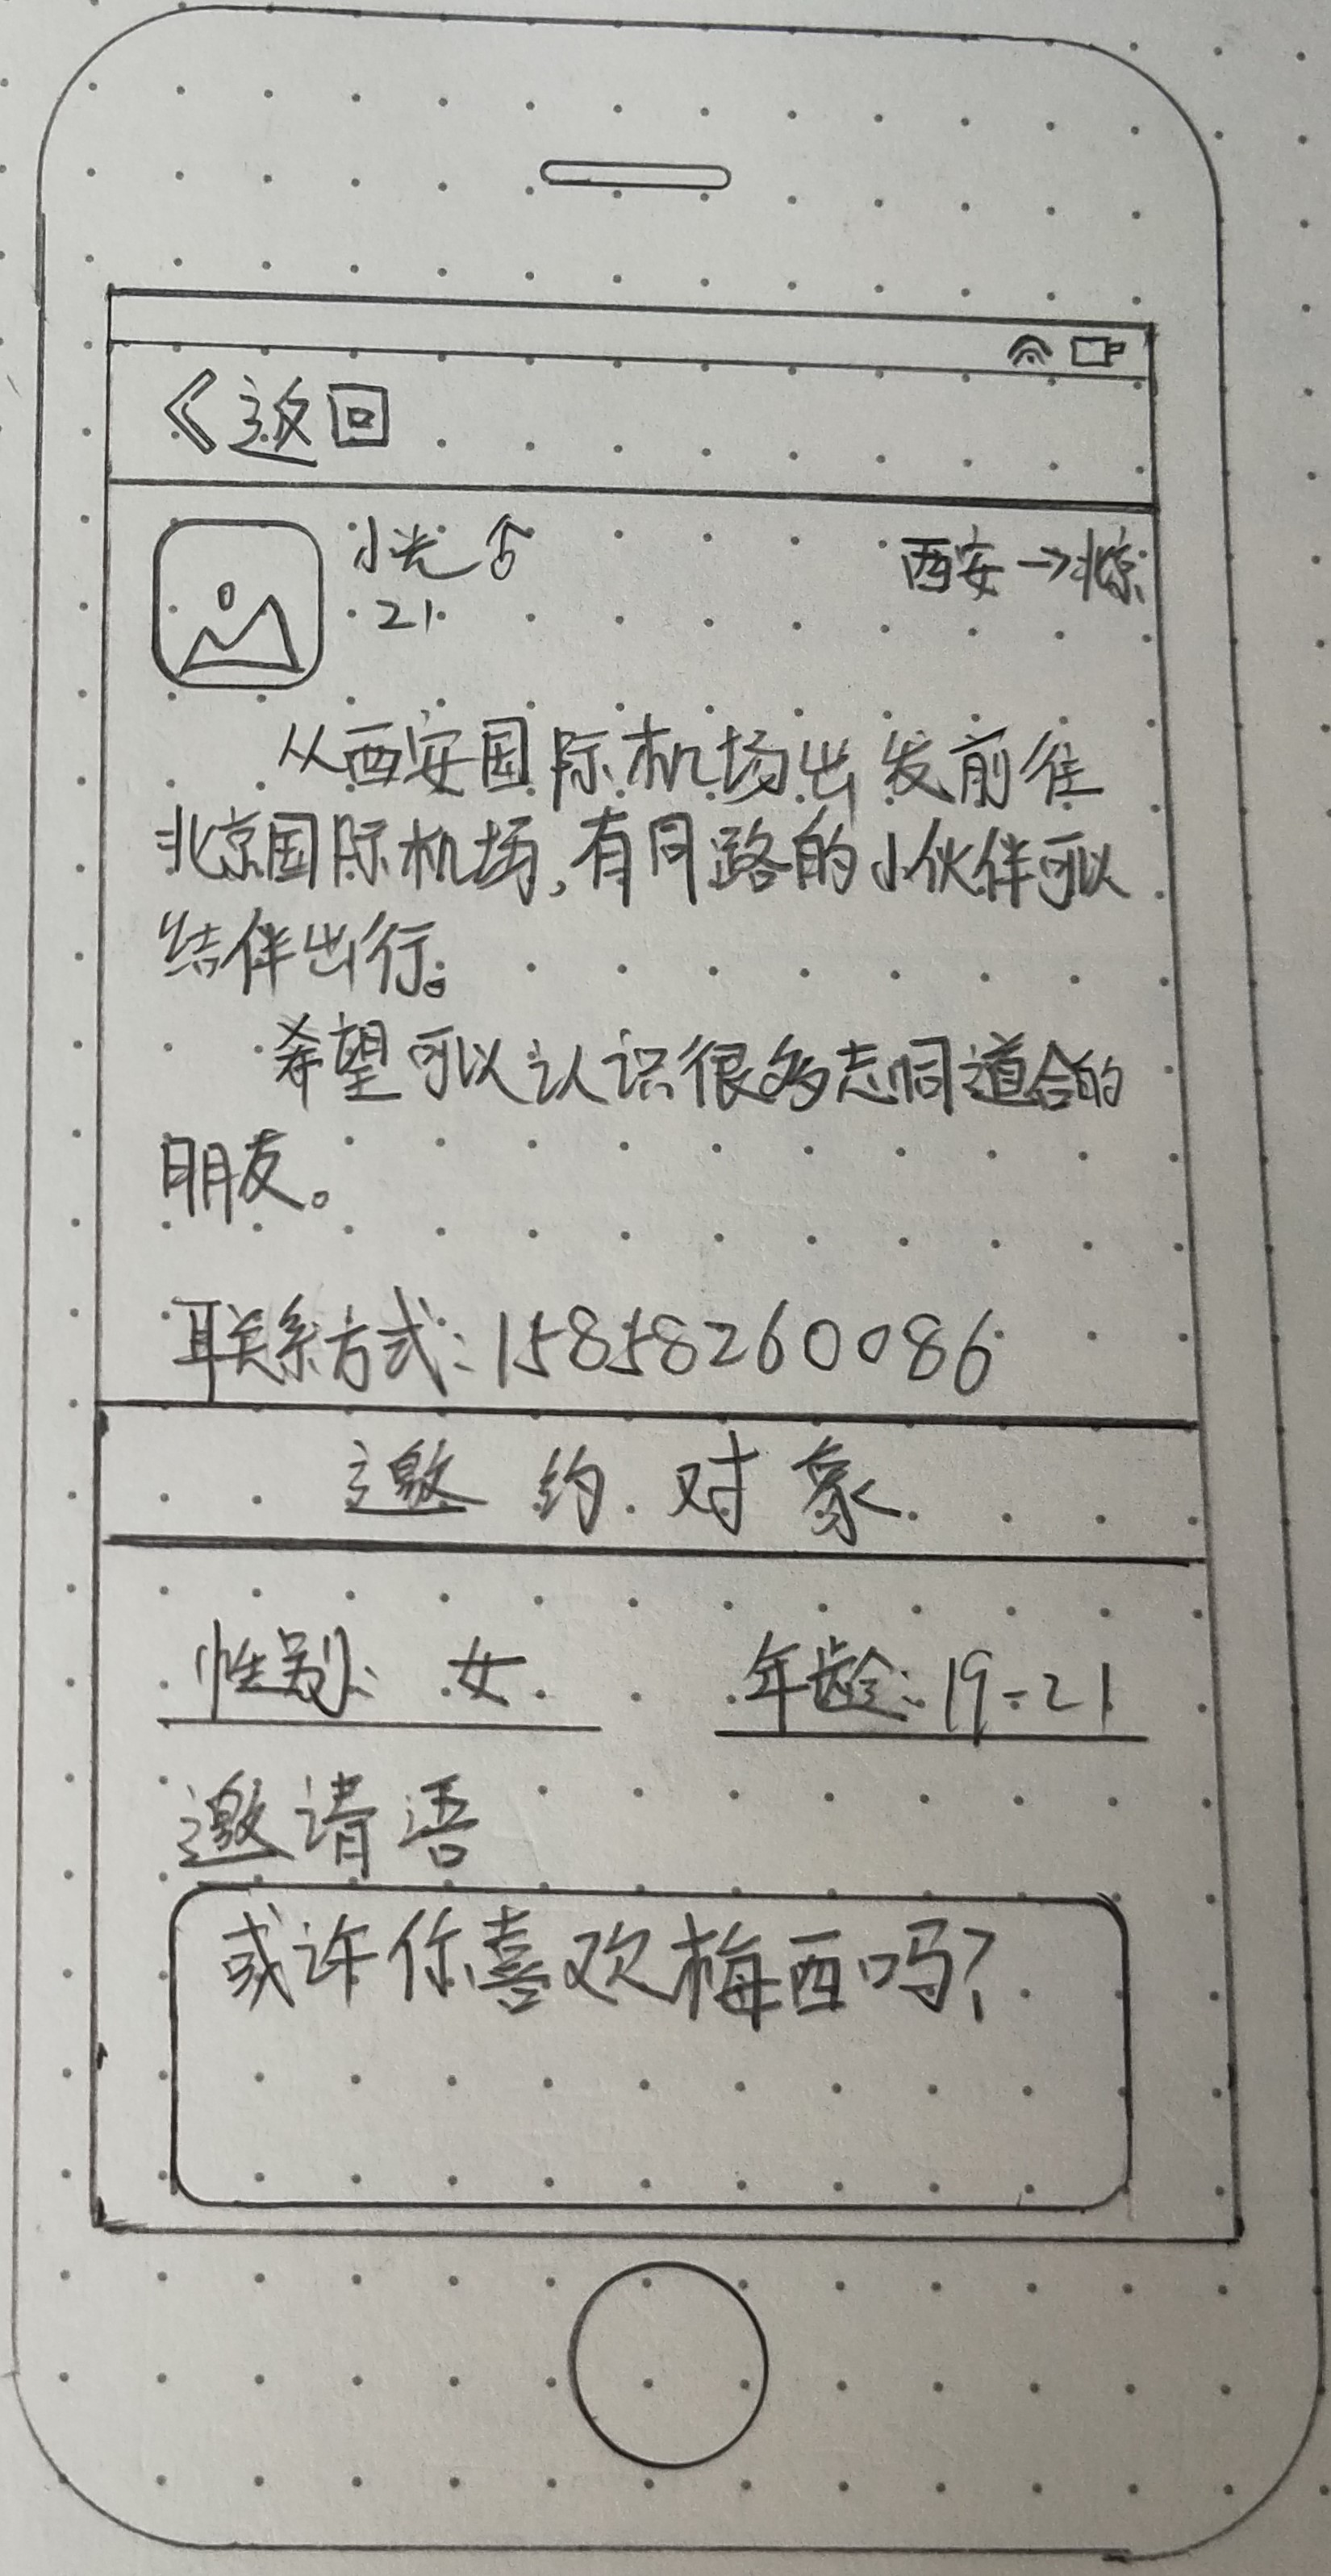 返回
小光 ♂
西安→北京
21
从西安国际机场出发前往
北京国际机场,有同路的小伙伴可以
结伴出行。
希望可以认识很多志同道合的
朋友。
联系方式:15858260086
邀约对象
性别: 女
年龄:19-21
邀请语
或许你喜欢梅西吗?